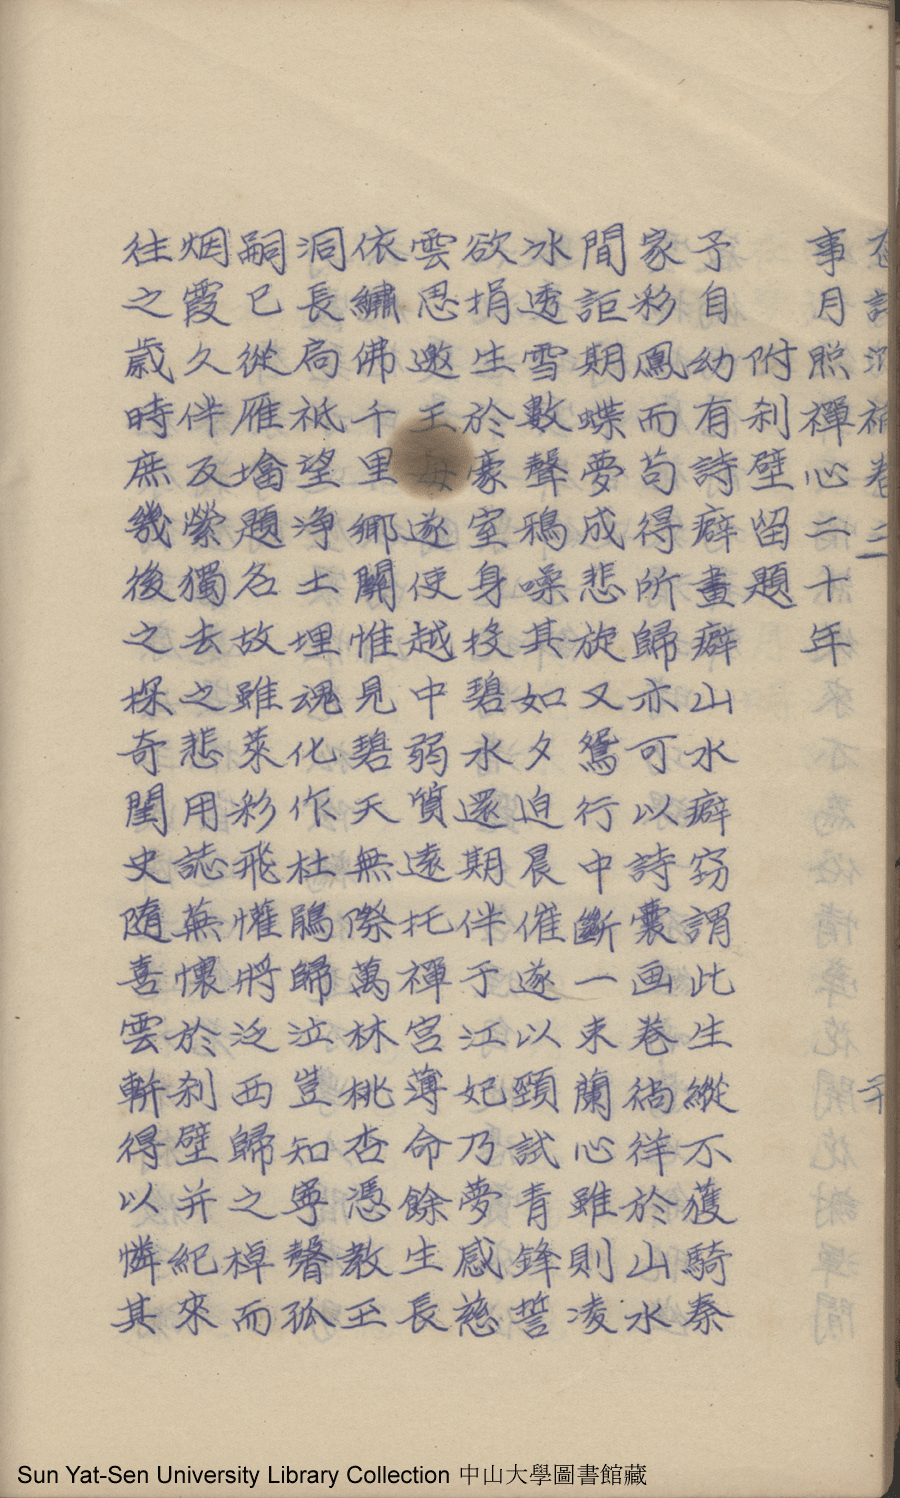 卷三
事月照禪心二十年
附刹壁留題
予自幼有詩癖畫癖山水癖窃謂此生縱不獲騎秦
家彩鳳而苟得所歸亦可以詩囊画卷徜徉於山水
間詎期蝶夢成悲旋又鴛行中斷一束蘭心雖則凌
冰透雪數聲鴉噪其如夕迫晨催遂以頸試青鋒誓
欲捐生於豪室身投碧水還期伴于江妃乃夢感慈
雲恩邀王母遂使越中弱質遠托禪宮薄命餘生長
依繡佛千里鄉關惟見碧天無際萬林桃杏憑教玉
洞長扃祗望淨土埋魂化作杜鵑歸泣豈知寧馨孤
嗣已從雁墖題名故雖萊彩飛懽將泛西歸之棹而
烟霞久伴反縈獨去之悲用誌蕪懷於刹壁并紀來
往之歲時庶幾後之探奇閨史隨喜雲軿得以憐其
Sun Yat-Sen University Library Collection 中山大學圖書館藏